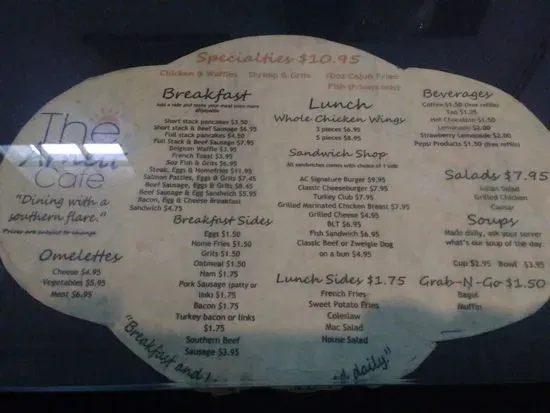 Specialties $10.95
Chicken & Waffles Shrimp & Grits Cajun Fries
Fish (Fridays only)
The
Arnett
Cafe
"Dining with a
southern flare."
Prices are subject to change
Omelettes
Cheese $4.95
Vegetables $5.95
Meat $6.95
Breakfast
Add a side and make your meal even more
Short stack pancakes $3.50
Short stack & Beef Sausage $6.95
Full stack pancakes $4.50
Full Stack & Beef Sausage $7.95
Belgium Waffle $3.95
French Toast $3.95
5oz Fish & Grits $6.95
Steak, Eggs & Homefries $11.95
Salmon Patties, Eggs & Grits $7.45
Beef Sausage, Eggs & Grits $8.45
Beef Sausage & Egg Sandwich $5.95
Bacon, Egg & Cheese Breakfast
Sandwich $4.75
Breakfast Sides
Eggs $1.50
Home Fries $1.50
Grits $1.50
Oatmeal $1.50
Ham $1.75
Pork Sausage (patty or
link) $1.75
Bacon $1.75
Turkey bacon or links
$1.75
Southern Beef
Sausage $3.95
Lunch
Whole Chicken Wings
3 pieces $6.95
5 pieces $8.95
Sandwich Shop
All sandwiches comes with choice of 1 side
AC Signature Burger $9.95
Classic Cheeseburger $7.95
Turkey Club $7.95
Grilled Marinated Chicken Breast $7.95
Grilled Cheese $4.95
BLT $6.95
Fish Sandwich $6.95
Classic Beef or Zweigle Dog
on a bun $4.95
Lunch Sides $1.75
French Fries
Sweet Potato Fries
Coleslaw
Mac Salad
House Salad
Beverages
Coffee $1.50 (free refills)
Tea $1.25
Hot Chocolate $1.50
Lemonade $2.00
Strawberry Lemonade $2.00
Pepsi Products $1.50 (free refills)
Salads $7.95
Julian Salad
Grilled Chicken
Caesar
Soups
Made daily, ask your server
what's our soup of the day.
Cup $2.95 Bowl $3.95
Grab-N-Go $1.50
Bagel
Muffin
"Breakfast and daily."